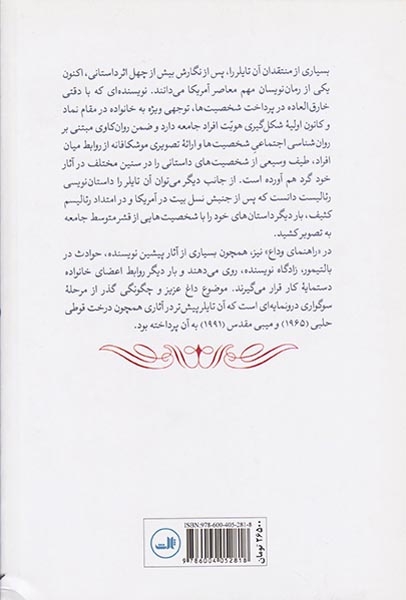 بسیاری از منتقدان آن تایلر را، پس از نگارش بیش از چهل اثر داستانی، اکنون
یکی از رمان‌نویسان مهم معاصر آمریکا می‌دانند. نویسنده‌ای که با دقتی
خارق‌العاده در پرداخت شخصیت‌ها، توجهی ویژه به خانواده در مقام نماد
و کانون اولیهٔ شکل‌گیری هویّت افراد جامعه دارد و ضمن روان‌کاوی مبتنی بر
روان‌شناسی اجتماعیِ شخصیت‌ها و ارائهٔ تصویری موشکافانه از روابط میان
افراد، طیف وسیعی از شخصیت‌های داستانی را در سنین مختلف در آثار
خود گرد هم آورده است. از جانب دیگر می‌توان آن تایلر را داستان‌نویسی
رئالیست دانست که پس از جنبش نسل بیت در آمریکا و در امتداد رئالیسم
کثیف، بار دیگر داستان‌های خود را با شخصیت‌هایی از قشر متوسط جامعه
به تصویر کشید.
در «راهنمای وداع» نیز، همچون بسیاری از آثار پیشین نویسنده، حوادث در
بالتیمور، زادگاه نویسنده، روی می‌دهند و بار دیگر روابط اعضای خانواده
دستمایهٔ کار قرار می‌گیرند. موضوع داغ عزیز و چگونگی گذر از مرحلهٔ
سوگواری درونمایه‌ای است که آن تایلر پیش‌تر در آثاری همچون درخت قوطی
حلبی (۱۹۶۵) و میبی مقدس (۱۹۹۱) به آن پرداخته بود.
ISBN:978-600-405-281-8
9786004052818
۲۶۵۰۰ تومان
ثالث